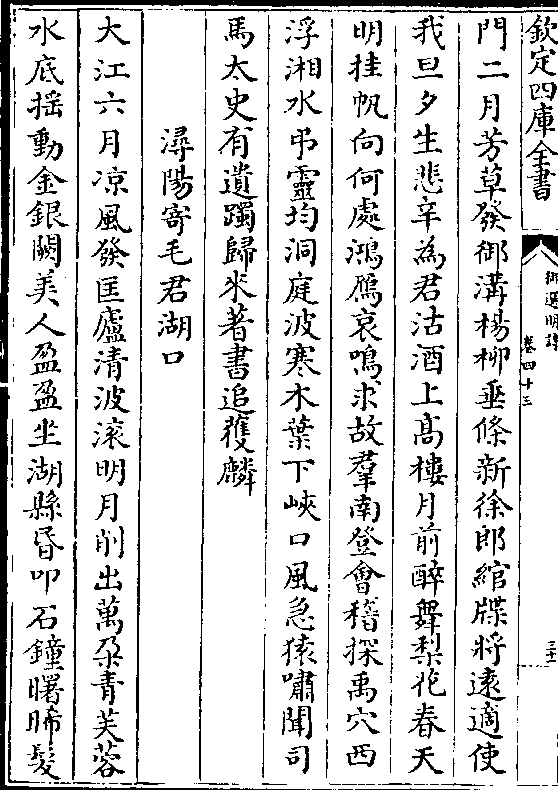 欽定四庫全書
御選明詩
卷四十三
門二月芳草發御溝楊柳垂條新徐郎綰牒將遠適使
我旦夕生悲辛為君沽酒上高樓月前醉舞梨花春天
明挂帆向何處鴻鴈哀鳴求故羣南登會稽探禹穴西
浮湘水弔靈均洞庭波寒木葉下峽口風急猿嘯聞司
馬太史有遺躅歸來著書追獲麟
潯陽寄毛君湖口
大江六月凉風發匡廬清波滚明月削出萬朶青芙蓉
水底揺動金銀闕美人盈盈坐湖縣昏叩石鐘曙晞髮